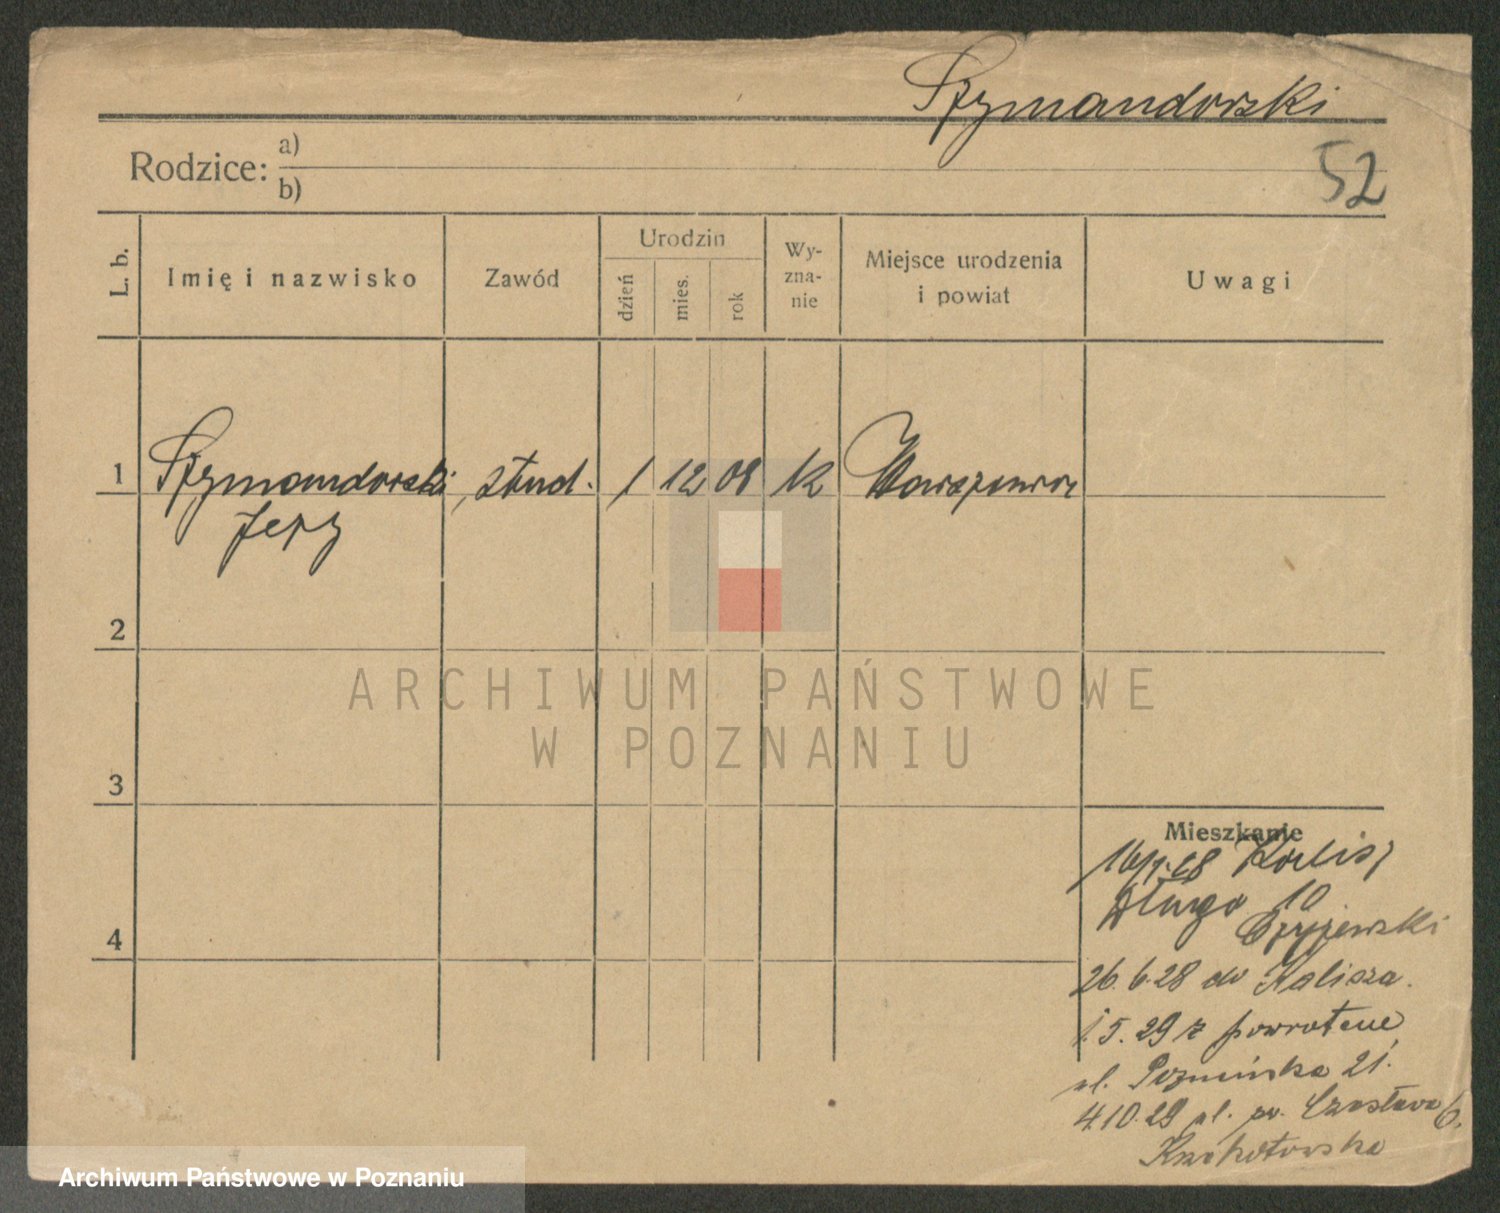 Szymandorski
52
Rodzice: a)
b)
L. b.
Imię i nazwisko
Zawód
Urodzin
dzień
mies.
rok
Wy-
zna-
nie
Miejsce urodzenia
i powiat
Uwagi
1 Szymandorski stud. 1 12 08 k Warszawa
Jerzy
2
3
4
Mieszkanie
28 Kalisz
Długa 10
26.6.28 do Kalisza.
1.5.29 z powrotem
ul. Poznańska 21.
4.10.29 ul. św. Czesława 6.
ARCHIWUM PAŃSTWOWE
W POZNANIU
Archiwum Państwowe w Poznaniu